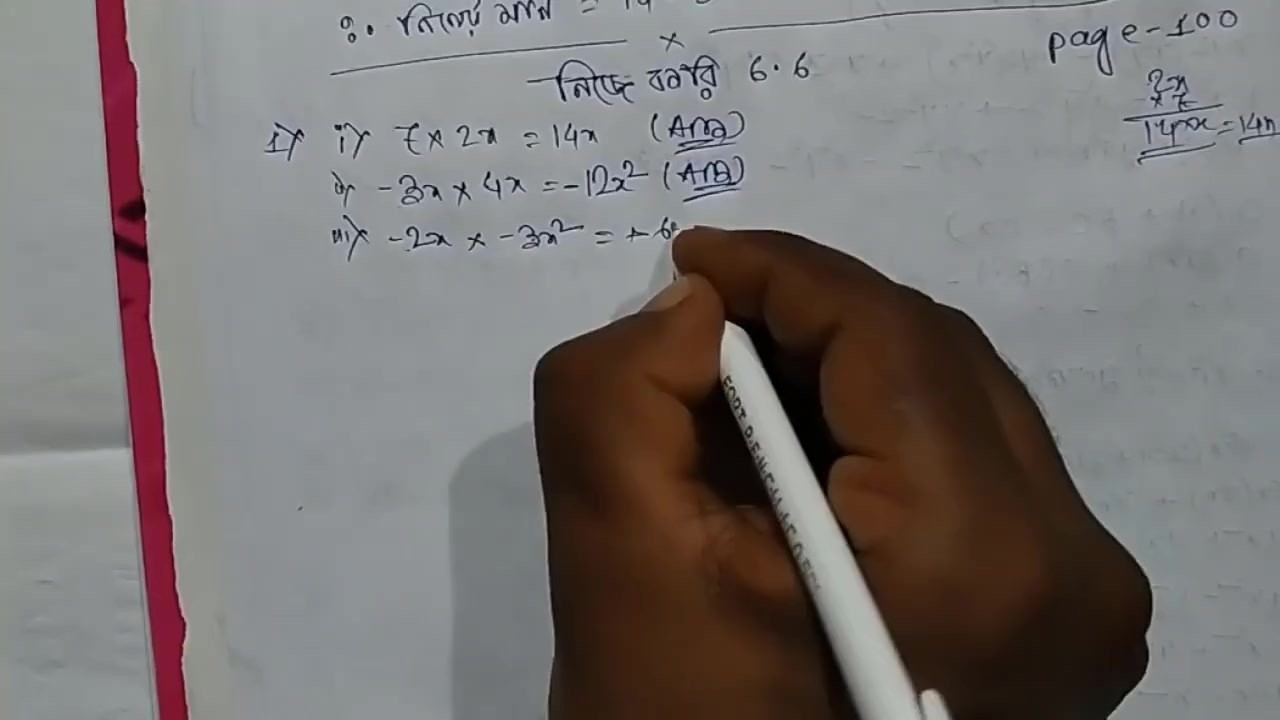 ∴ নির্ণেয় মান = 14
×
নিজে করি 6.6
page-100
1) i) 7 × 2x = 14x (Ans)
ii) -3x × 4x = -12x² (Ans)
iii) -2x × -3x² = + 6
2x
× 7
14x = 14x